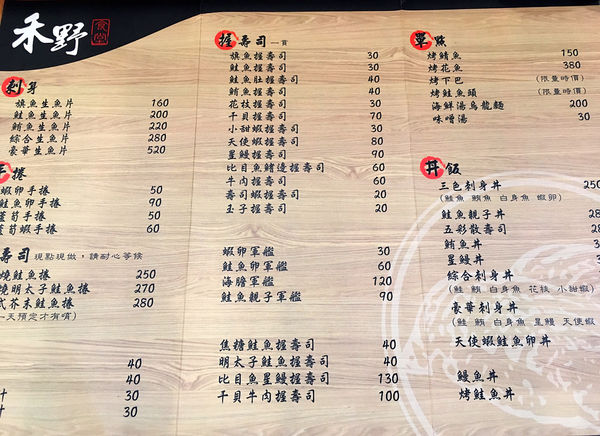 禾野
食堂
刺身
旗魚生魚片 160
鮭魚生魚片 200
鮪魚生魚片 220
綜合生魚片 280
豪華生魚片 520
手捲
蝦卵手捲 50
鮭魚卵手捲 90
蘆筍手捲 50
蘆筍手捲 60
壽司 現點現做,請耐心等候
燒鮭魚捲 250
燒明太子鮭魚捲 270
式芥末鮭魚捲 280
一天預定才有唷)
40
40
汁 30
汁 30
握壽司 一貫
旗魚握壽司 30
鮭魚握壽司 40
鮭魚肚握壽司 40
鮪魚握壽司 40
花枝握壽司 30
干貝握壽司 70
小甜蝦握壽司 40
天使蝦握壽司 80
星鰻握壽司 90
比目魚鰭邊握壽司 60
牛肉握壽司 60
壽司蝦握壽司 20
玉子握壽司 20
蝦卵軍艦 30
鮭魚卵軍艦 60
海膽軍艦 120
鮭魚親子軍艦 90
焦糖鮭魚握壽司 40
明太子鮭魚握壽司 40
比目魚星鰻握壽司 130
干貝牛肉握壽司 100
單點
烤鯖魚 150
烤花魚 380
烤下巴 (限量時價)
烤鮭魚頭 (限量時價)
海鮮湯烏龍麵 200
味噌湯 30
丼飯
三色刺身丼
(鮭魚 鮪魚 白身魚 蝦卵)
鮭魚親子丼
五彩散壽司
鮪魚丼
星鰻丼
綜合刺身丼
(鮭 鮪 白身魚 花枝 小甜蝦)
豪華刺身丼
(鮭 鮪 白身魚 星鰻 天使蝦
天使蝦鮭魚卵丼
鰻魚丼
烤鮭魚丼